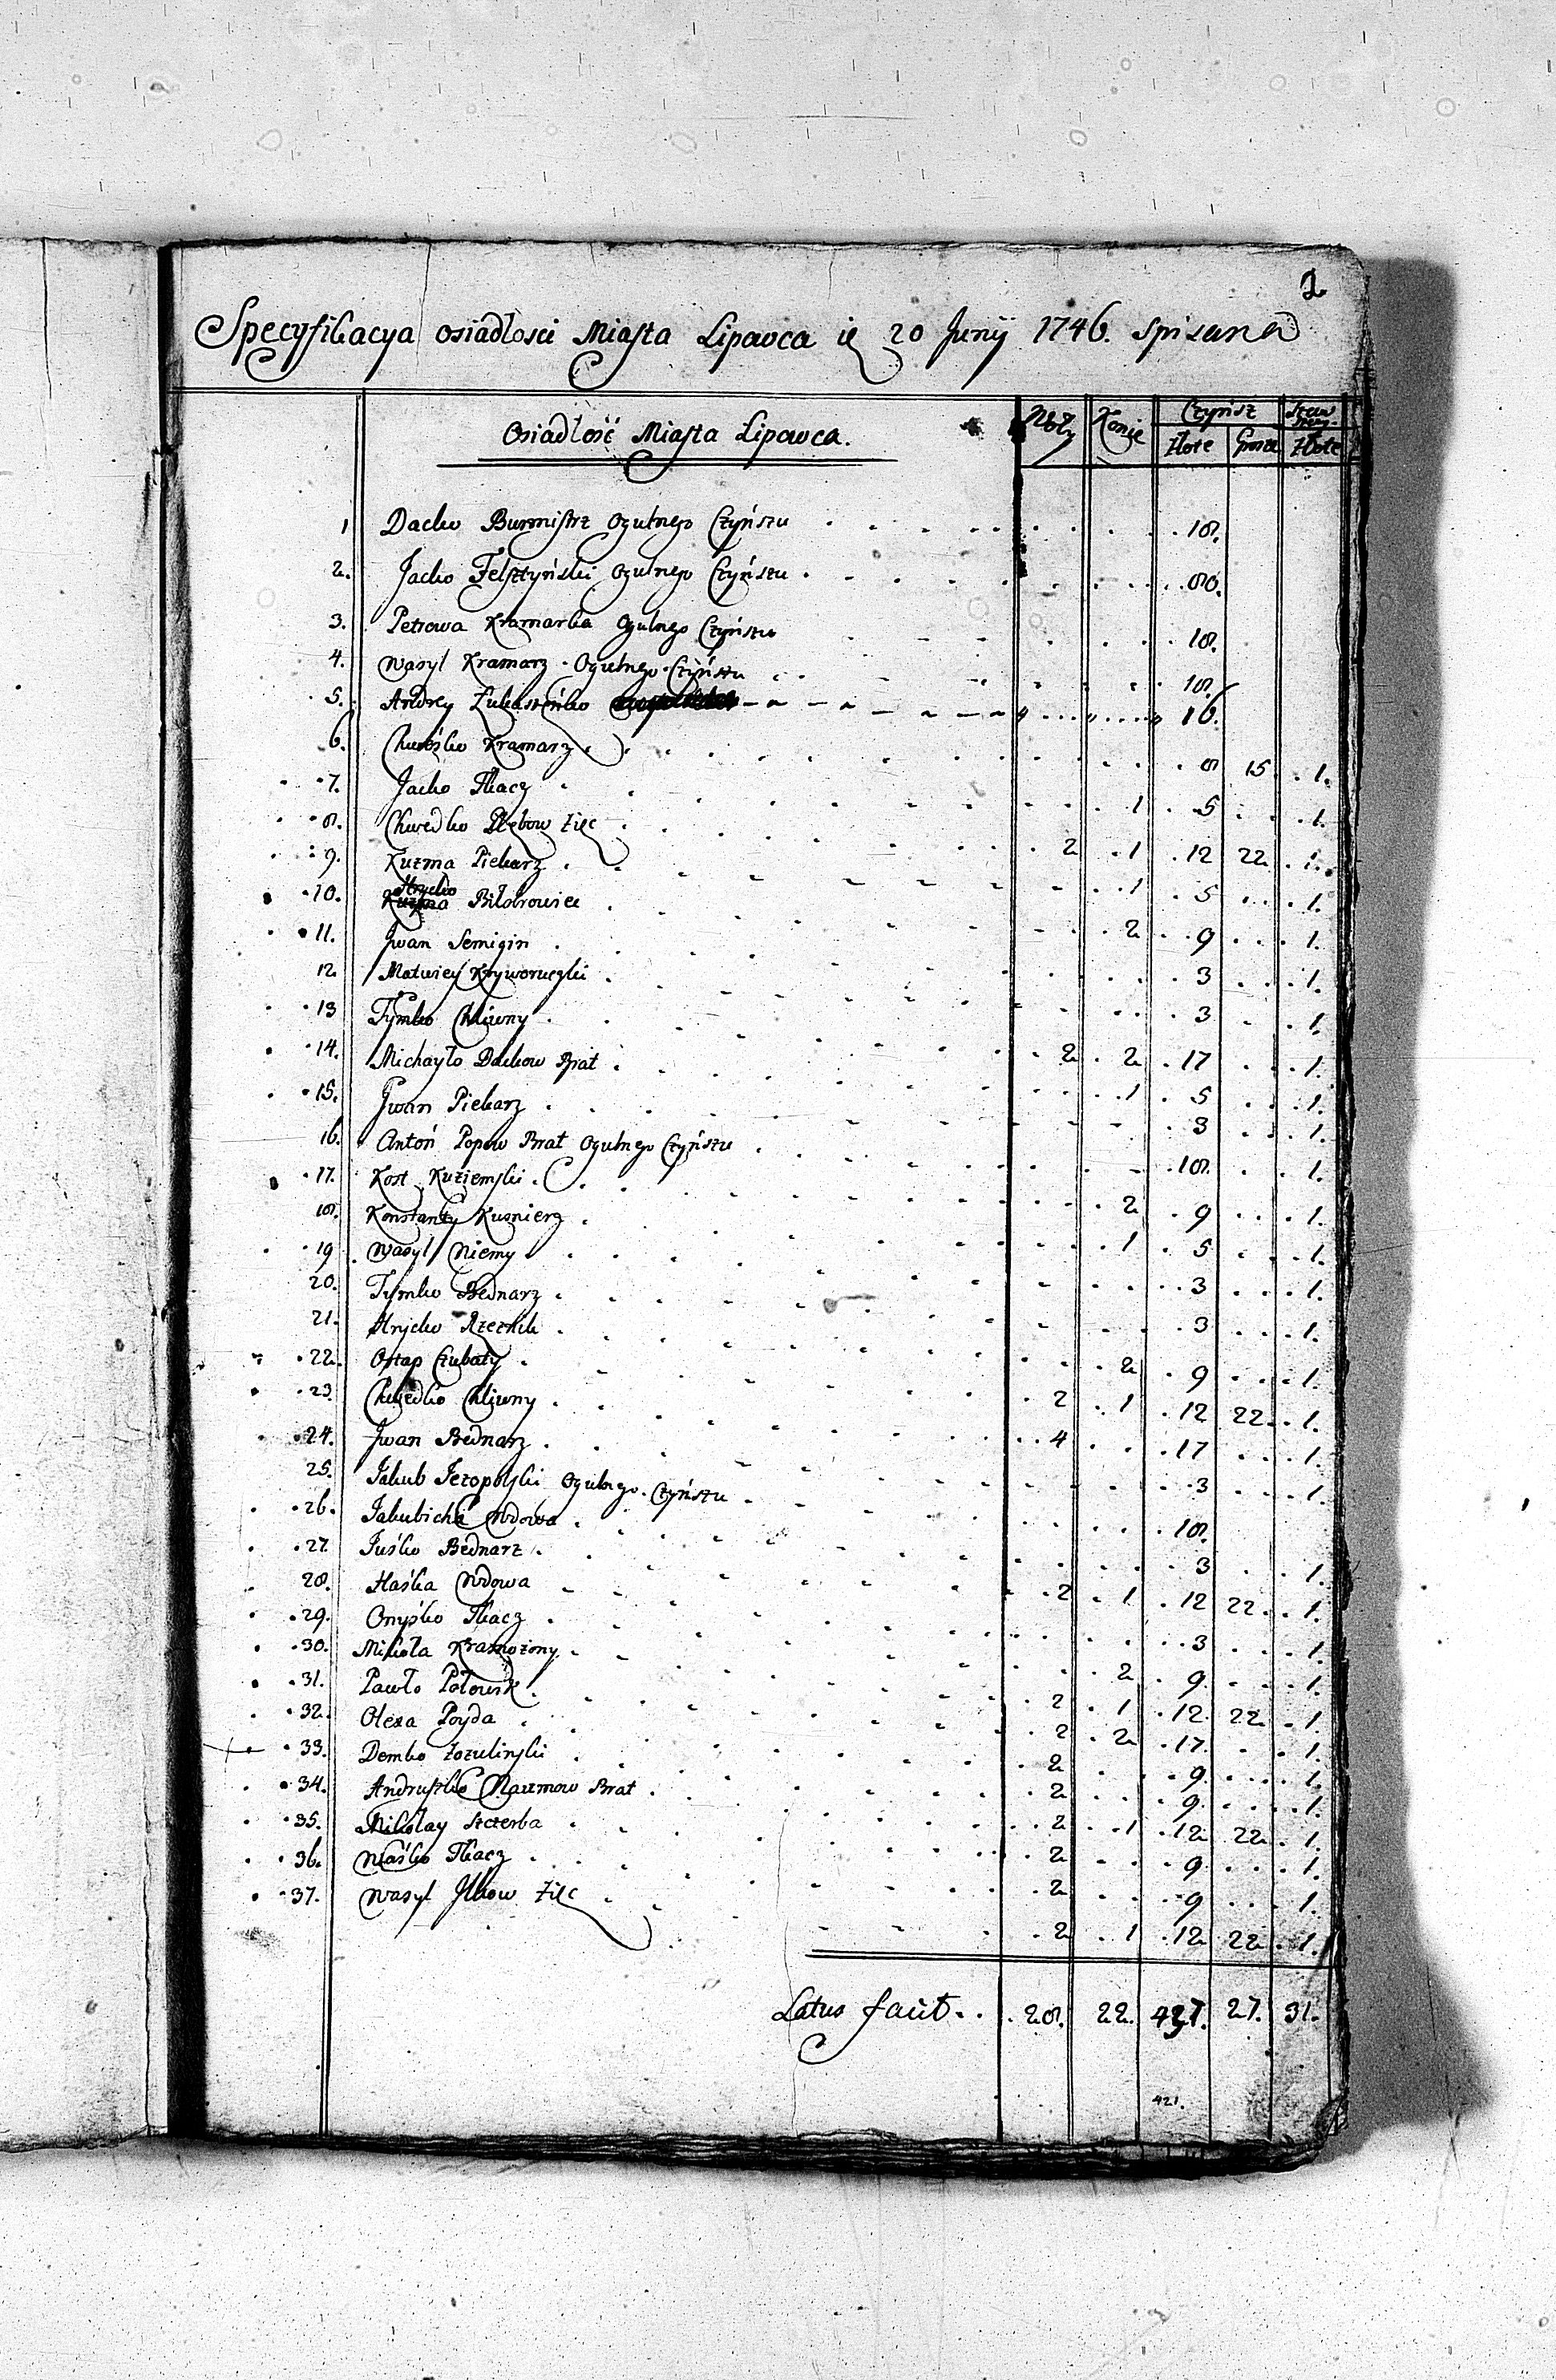 2
Specyfikacya osiadłosci Miasta Lipowca ie 20 Junÿ 1746. spisana
Osiadłość Miasta Lipowca. Woły Konie Czynsz
Złote Grosze Złote
1 Dacko Burmistrz Ogulnego Czyńszu 18.
2. Jacko Felsztyński Ogulnego Czyńszu 80.
3. Petrowa Kramarka Ogulnego Czyńszu 18.
4. Wasyl Kramarz Ogulnego Czyńszu 18.
5. Andrey Łukaszeńko 16.
6. Chweśko Kramarz 8 15 1.
7. Jacko Tkacz 1 5 1.
8. Chwedko Zięc 2 1 12 22 1.
9. Kuzma Piekarz 1 5 1.
10. Hrycko Biłobrowiec 2 9 1.
11. Jwan Semigin 3 1.
12. Matwiey Kryworuczki 3 1.
13 Tymko Chliwny 2 2 17 1.
14. Michayło Dackow Brat 1 5 1.
15. Jwan Piekarz 3 1.
16. Antoń Popow Brat Ogulnego Czyńszu 18. 1.
17. Kost Kuziemski 2 9 1.
18. Konstanty Kusnierz 1 5 1.
19 Wasyl Niemy 3 1.
20. Tymko Bednarz 3 1.
21. Hrycko Rzeznik 2 9 1.
22. Ostap Czubaty 2 1 12 22 1.
23. Chwedko Chliwny 4 17 1.
24. Jwan Bednarz 3 1.
25. Jakub Jezopolski Ogulnego Czyńszu 18.
26. Jakubicha Wdowa 3 1.
27. Juśko Bednarz 2 1 12 22 1.
28. Haśka Wdowa 3 1.
29. Onyśko Tkacz 2 9 1.
30. Mikoła Kramożony 2 1 12 22 1.
31. Pawło Połowik 2 2 17 1.
32. Olexa Poyda 2 9 1.
33. Demko Zozulinski 2 9 1.
34. Andruszko Naumow Brat 2 1 12 22 1.
35. Mikołay Szczerba 2 9 1.
36. Waśko Tkacz 2 9 1.
37. Wasyl Jlkow Zięc 2 1 12 22 1.
Latus facit 28. 22. 427. 27. 31.
421.